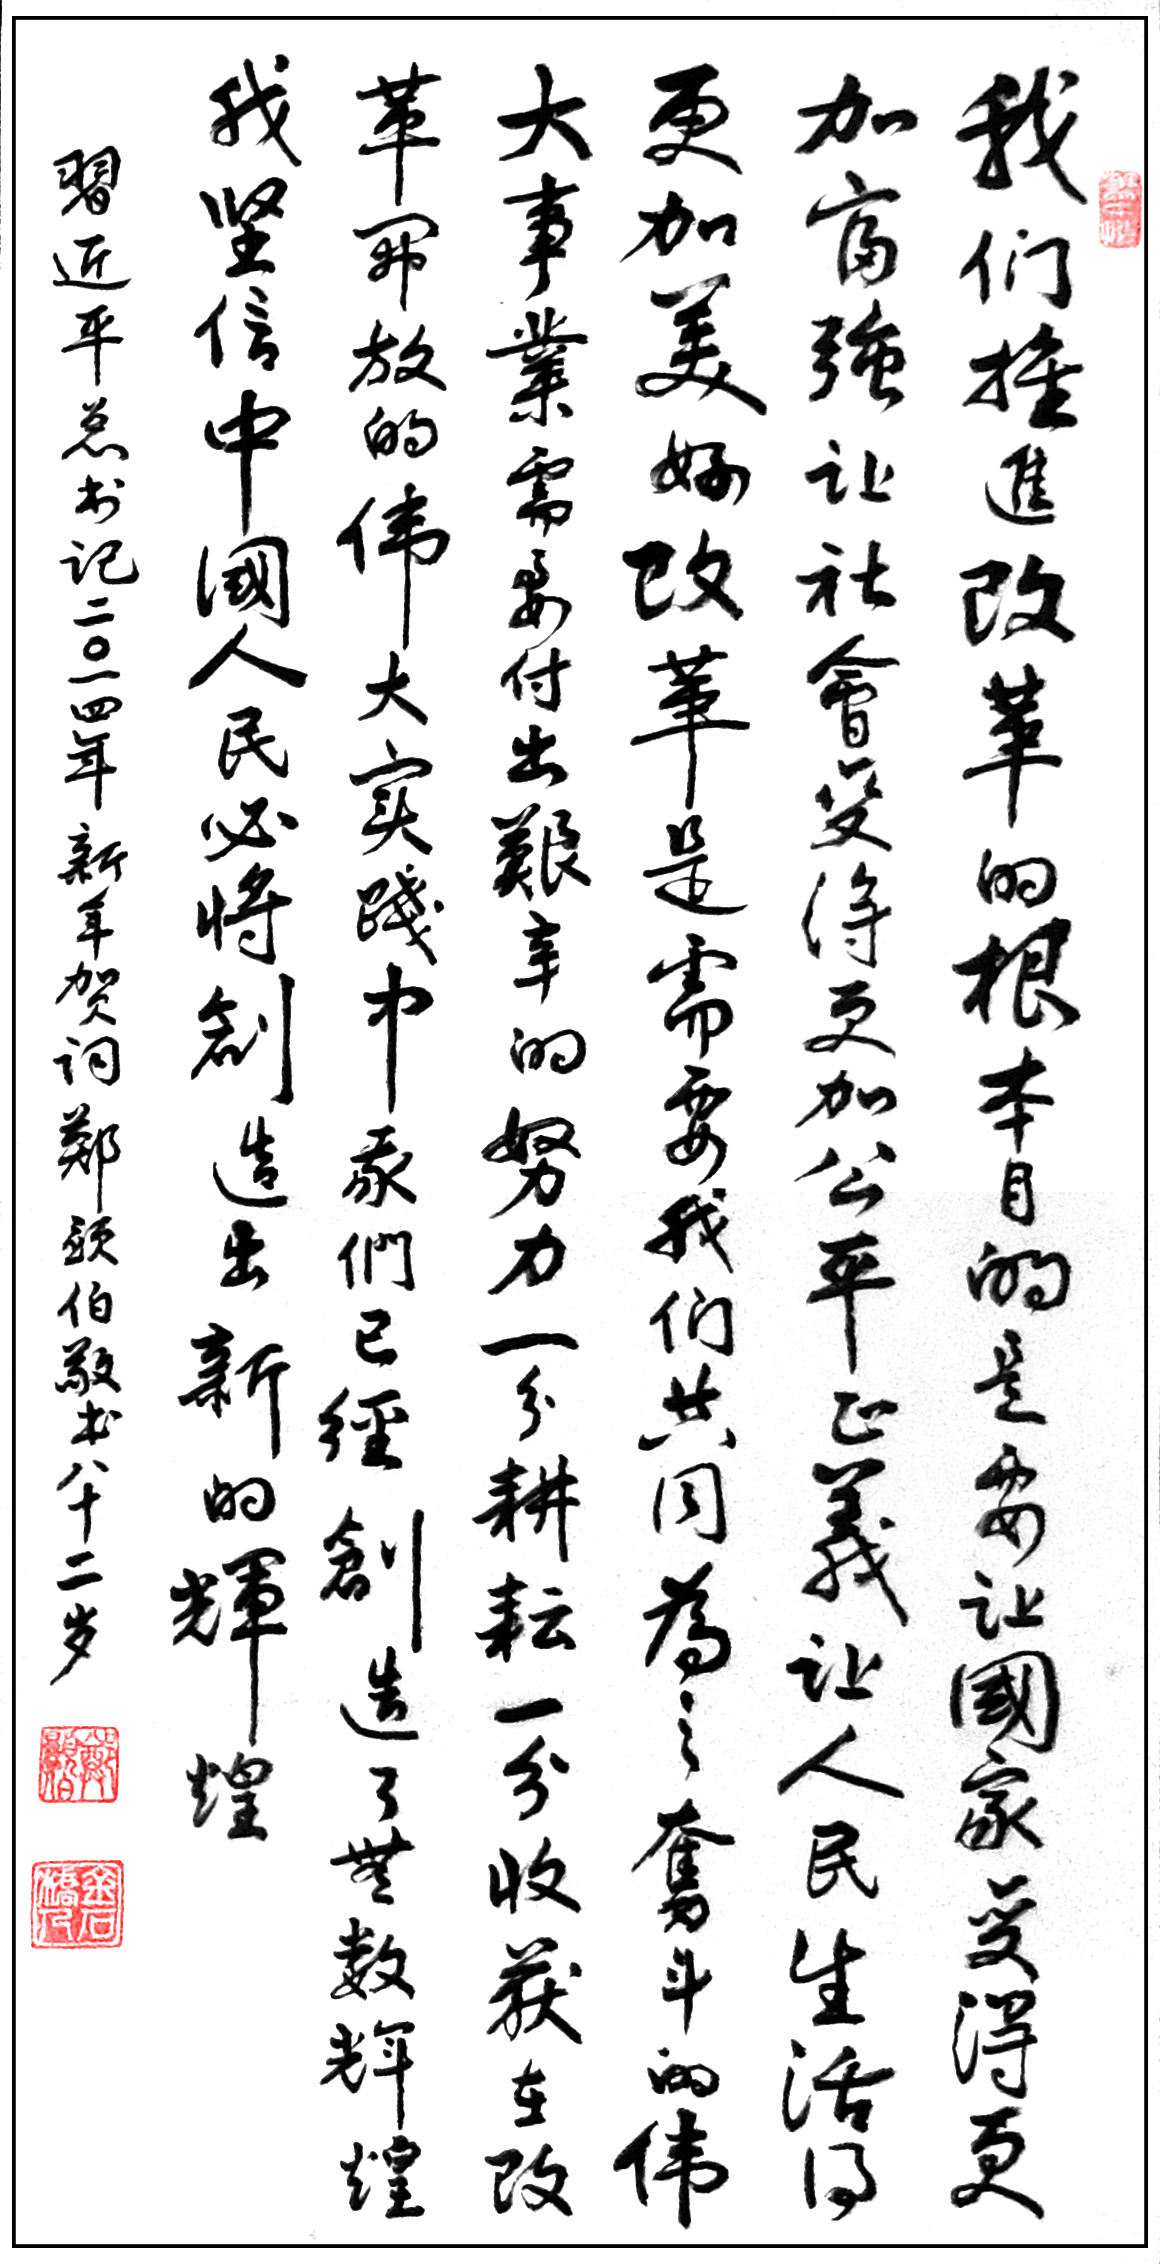 我们推進改革的根本目的是要让國家变得更
加富強让社會变得更加公平正義让人民生活得
更加美好改革是需要我们共同為之奮斗的伟
大事業需要付出艱辛的努力一分耕耘一分收获在改
革開放的伟大实踐中我們已經創造了無数輝煌
我坚信中國人民必将創造出新的輝煌
習近平总书记二〇一四年新年贺词鄭顕伯敬书八十二岁
鄭顯伯